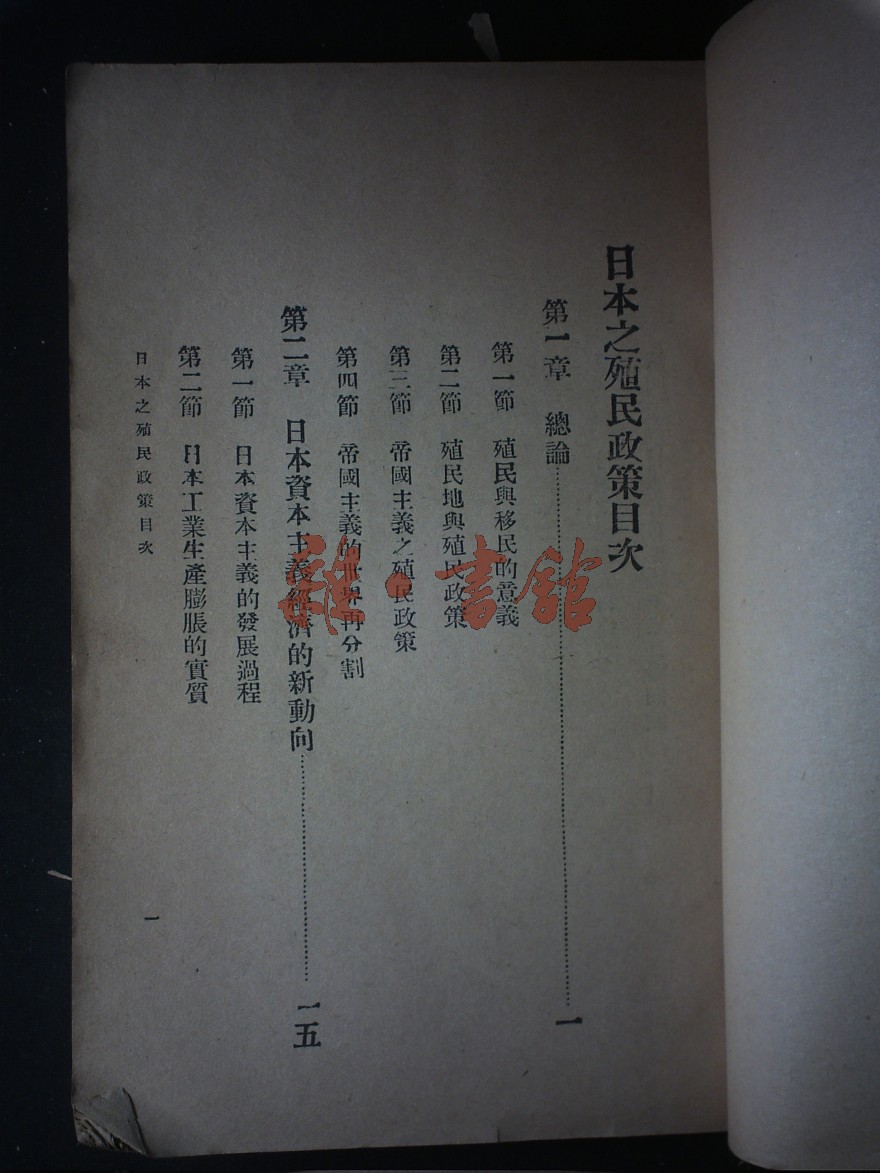 日本之殖民政策目次
第一章　總論……一
第一節　殖民與移民的意義
第二節　殖民地與殖民政策
第三節　帝國主義之殖民政策
第四節　帝國主義的世界再分割
第二章　日本資本主義經濟的新動向……一五
第一節　日本資本主義的發展過程
第二節　日本工業生產膨脹的實質
日本之殖民政策目次
一
雜·書館